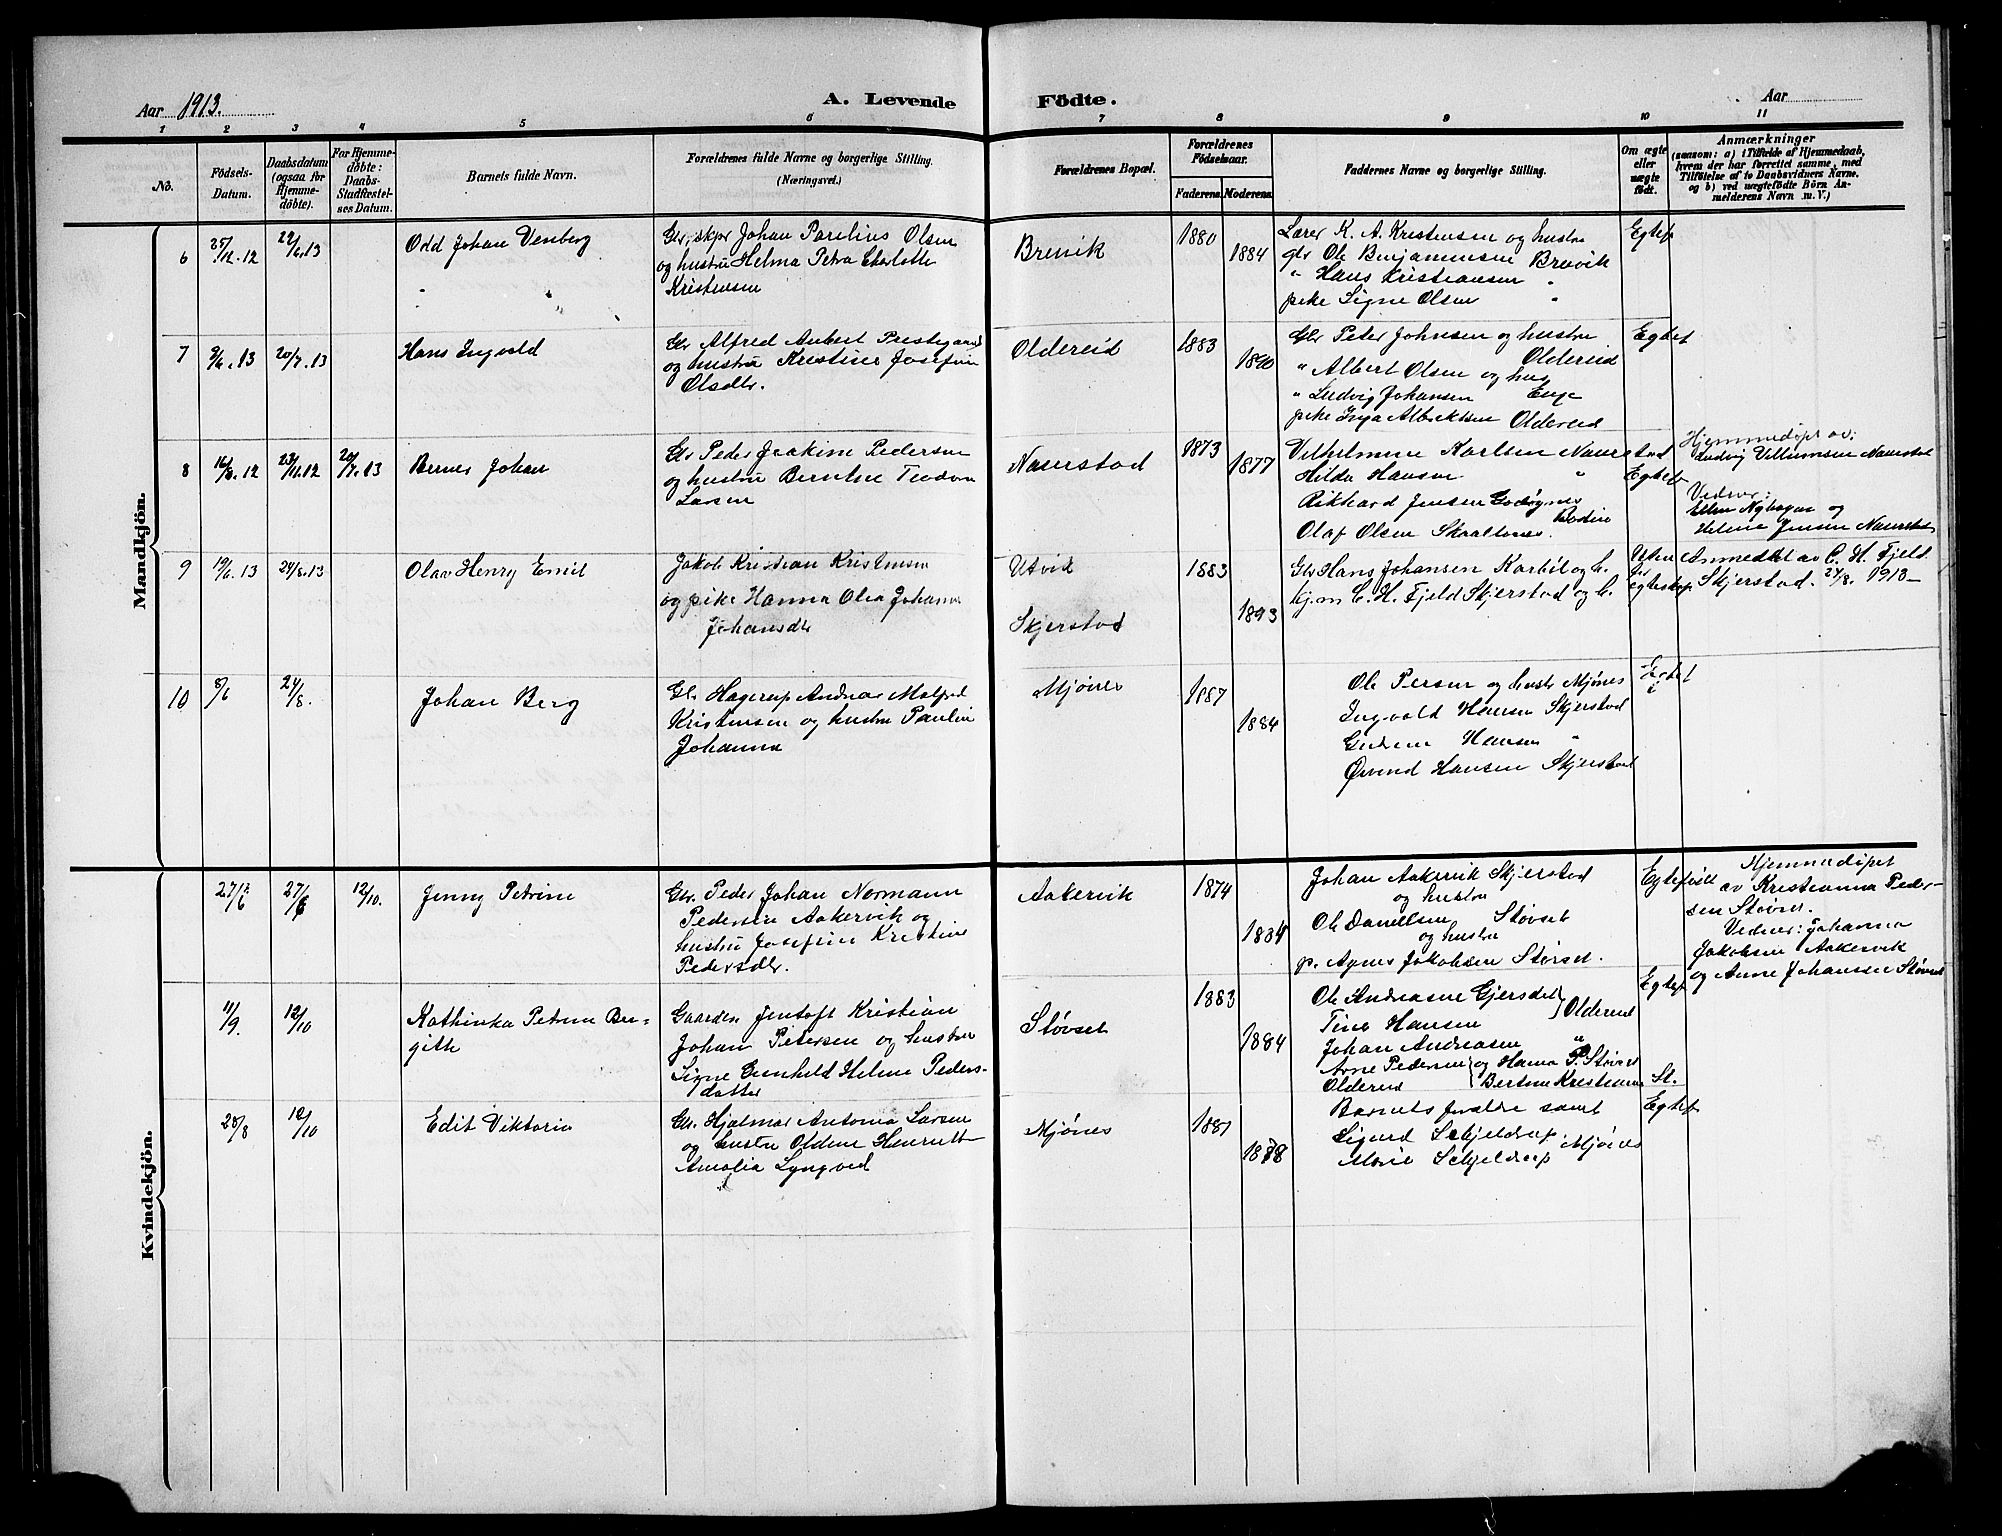 Aar 1913.
A. Levende Födte.
Aar
1 2 3 4 5 6 7 8 9 10 11
No.
Födsels-
Datum.
Daabsdatum
(ogsaa for
Hjemme-
döbte).
For Hjemme-
döbte:
Daabs-
Stadfæstel-
ses Datum.
Barnets fulde Navn.
Forældrenes fulde Navne og borgerlige Stilling.
(Næringsvei.)
Forældrenes Bopæl.
Forældrenes
Fødselsaar.
Faderens. Moderens.
Faddernes Navne og borgerlige Stilling.
Om ægte
eller
uægte
født.
Anmærkninger
(saasom: a) i Tilfælde af Hjemmedaab,
hvem der har forrettet samme, med
Tilføielse af to Daabsvidners Navne.
og b) ved uægtefödte Börn An-
melderens Navn m. V.)
Mandkjön.
6 25/12.12 22/6.13
Odd Johan Venberg
Gbr, skpr Johan Paulius Olsen
og hustru Helma Petra Charlotte
Kristensen
Brenik
1880 1884
Lærer K. A. Kristensen og hustru
gbr Ole Benjaminsen Brevik
" Hans Kristiansen "
pike Signe Olsen "
Egtef
7 9/6.13 20/7.13
Hans Ingvald
Gbr Alfred Anbert Prestegaard
og hustru Kristine Josefine
Olsdtr.
Oldereid
1883 1890
Gbr Peder Johnsen og hustru
Oldereid
" Albert Olsen og hus
" Ludvig Johansen Enge
pike Inga Albriktsen Oldereid
Egtef
8 16/8.12 23/11.12 20/7.13
Berner Johan
Gbr Peder Joakim Pedersen
og hustru Berntine Teodora
Larsen
Naurstad
1873 1877
Vilhelmine Karlsen Naurstad
Hilda Hansen "
Rikhard Jensen Godøynes
Bodin
Olaf Olsen Skaaltones.
Egtef
Hjemmedøpt av:
Ludvig Villumsen Naurstad
Vidner:
Ellen Nyhagen og
Helene Jensen Naurstad
9 19/6.13 24/8.13
Olav Henry Emil
Jakob Kristian Kristensen
og pike Hanna Olea Johanna
Johansdtr
Utvik
Skjerstad
1883 1893
Gbr Hans Johansen Karbøl og h.
kjm C. H. Fjeld Skjerstad og h.
Uten
for
egteskap
Anmeldt av C. H. Fjeld
Skjerstad. 24/8. 1913
10 8/6 24/8.
Johan Berg
Gbr Hagerup Andreas Malfred
Kristensen og hustru Pauline
Johanna
Mjønes
1887 1884
Ole Persen og hustr Mjønes
Ingvald Hansen Skjerstad
Gudrun Hansen "
Øivind Hansen Skjerstad
Egtef
Kvindekjön.
27/6 27/6 12/10.
Jenny Petrine
Gbr. Peder Johan Normann
Pedersen Aakervik og
hustru Josefine Kristine
Pedersdtr.
Aakervik
1874 1884
Johan Aakervik Skjerstad
og hustru
Ole Danielsen Støvset
og hustru
p. Agnes Jakobsen Støvset.
Egtefødt
Hjemmedøpt
av Kristianna Peder-
sen Støvset.
Vidner: Johanna
Jakobsen Aakervik
og Anne Johansen Støvset
11/9. 12/10
Kathinka Petrine Bir-
gith
Gaardbr Jentoft Kristian
Johan Petersen og hustru
Signe Gunhild Helene Peders-
datter
Støvset
1883 1884
Ole Andreasen Gjersdal
Tine Hansen } Oldereid
Johan Andreasen "
Arne Pedersen og Hanna P. Støvset
Oldereid Bertine Kristiansen St.
Egtef
28/8 12/10
Edit Viktoria
Gbr. Hjalmar Antonius Larsen
og hustru Oldine Henriette
Amalia Lyngved
Mjønes
1881 1878
Barnets forældre samt
Sigurd Schjeldrup Mjønes
Marie Schjeldrup
Egtef